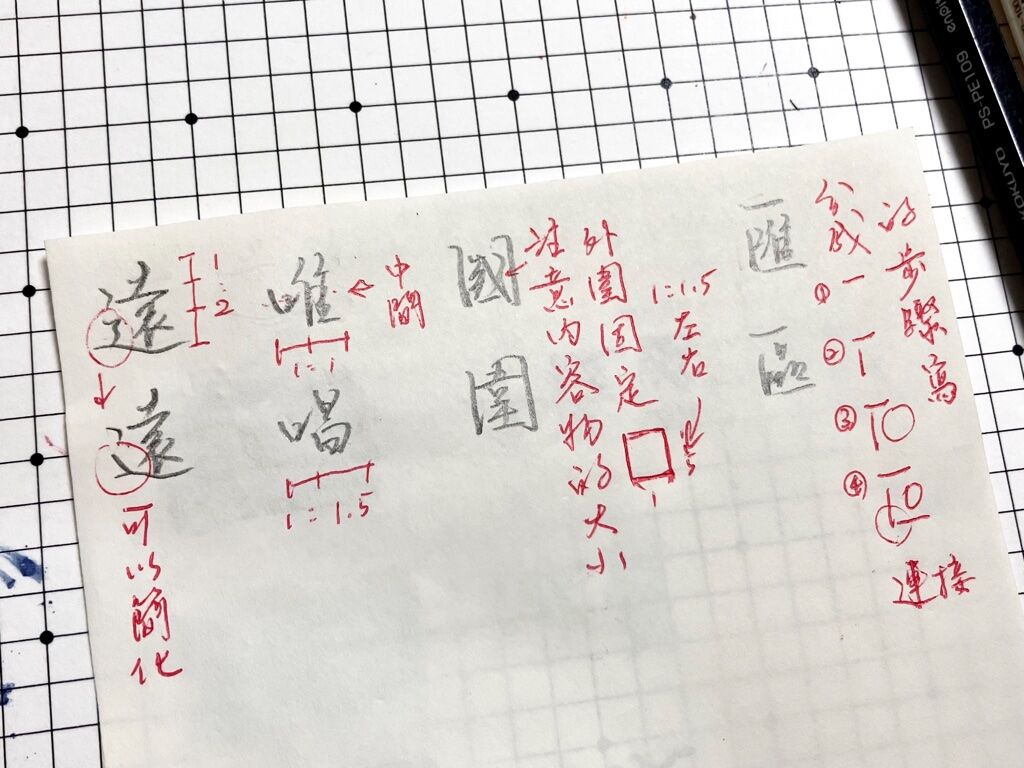 遠
1:2
遠
可以簡化
唯
中間
1:1
唱
1:1.5
國
圍
注意內容物的大小
外圍固定
1:1.5
左右
1
1.5
匯
區
分成
的步驟寫
①
②
③
④
連接
PS-PE109
KOKUYO